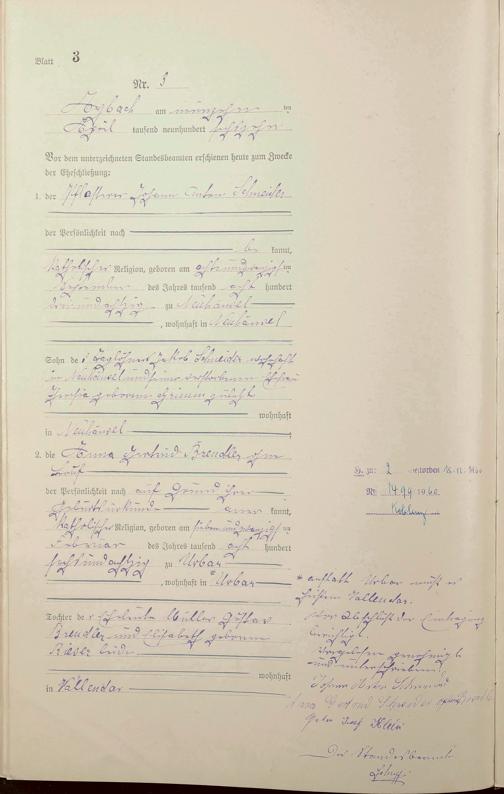 Blatt 3
Nr. 3
am neunzehn ten
April tausend neunhundert
Vor dem unterzeichneten Standesbeamten erschienen heute zum Zwecke
der Eheschließung:
1. der Pflasterer Johann Anton Schneider
der Persönlichkeit nach
be kannt,
katholischer Religion, geboren am achtundzwanzigsten
des Jahres tausend acht hundert
dreiundachtzig zu Neuhäusel
, wohnhaft in Neuhäusel
Sohn des Taglöhners Jakob Schneider wohnhaft
in Neuhäusel und seiner verstorbenen Ehefrau
geborene
wohnhaft
in Neuhäusel
2. die Anna Gertrud Brendler ohne
Beruf
der Persönlichkeit nach auf Grund ihrer
Geburtsurkunde aner kannt,
katholischer Religion, geboren am siebenundzwanzigsten
Februar des Jahres tausend acht hundert
sechsundachtzig zu Urbar
, wohnhaft in * Urbar
Tochter der Eheleute Müller Gustav
Brendler und Elisabeth geborene
beide
wohnhaft
in Vallendar
zu: 2 verstorben
Nr. 1499 1960
Koblenz
* anstatt Urbar muß es
heißen Vallendar.
Vor Abschluß der Eintragung
berichtigt.
Vorgelesen, genehmigt
und unterschrieben
Johann Anton Schneider
Anna Gertrud Schneider geborene Brendler
Klein
Der Standesbeamte